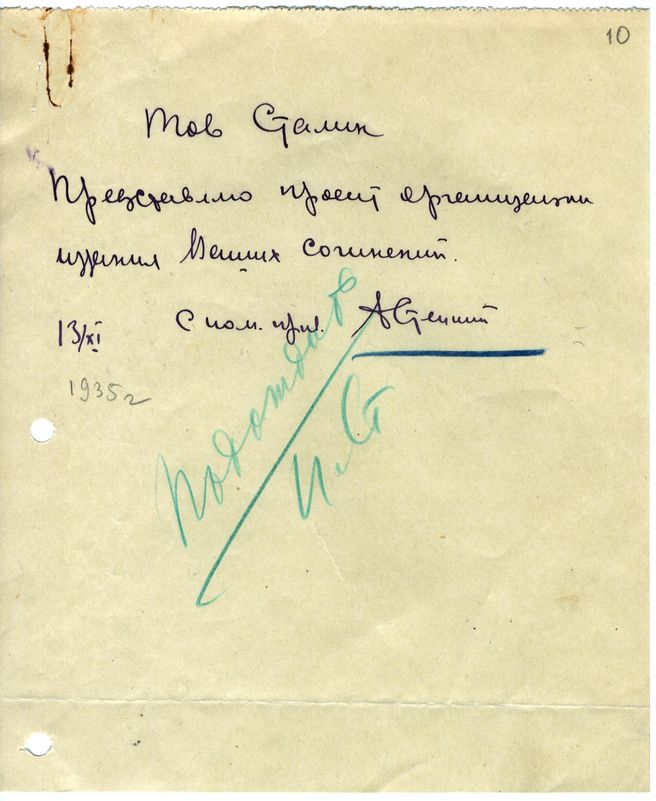 10
Тов Сталин
Представляю проект организации
издания Ваших сочинений.
13/XI С ком. прив. АСтецкий
1935 г
Подождать
И. Ст